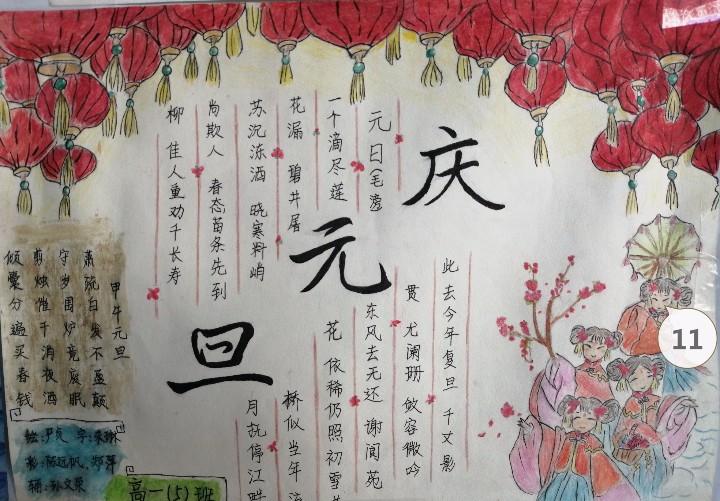 庆元旦
元日(毛滂
一个滴尽莲
花漏 碧井屠
苏沉冻酒 晓寒料峭
尚欺人 春态苗条先到
柳 佳人重劝千长寿
此去今年复旦 千丈影
贯 尤阑珊 敛容微吟
东风去无还 谢阆苑
花 依稀仍照初雪
桥似当年
月抚停江畔
甲午元旦
萧疏白发不盈颠
守岁围炉竟废眠
剪烛催干消夜酒
倾囊分遍买春钱
绘:尹 字:
彩:陈远帆,郑萍
辅:孙文
高一(5)班
11